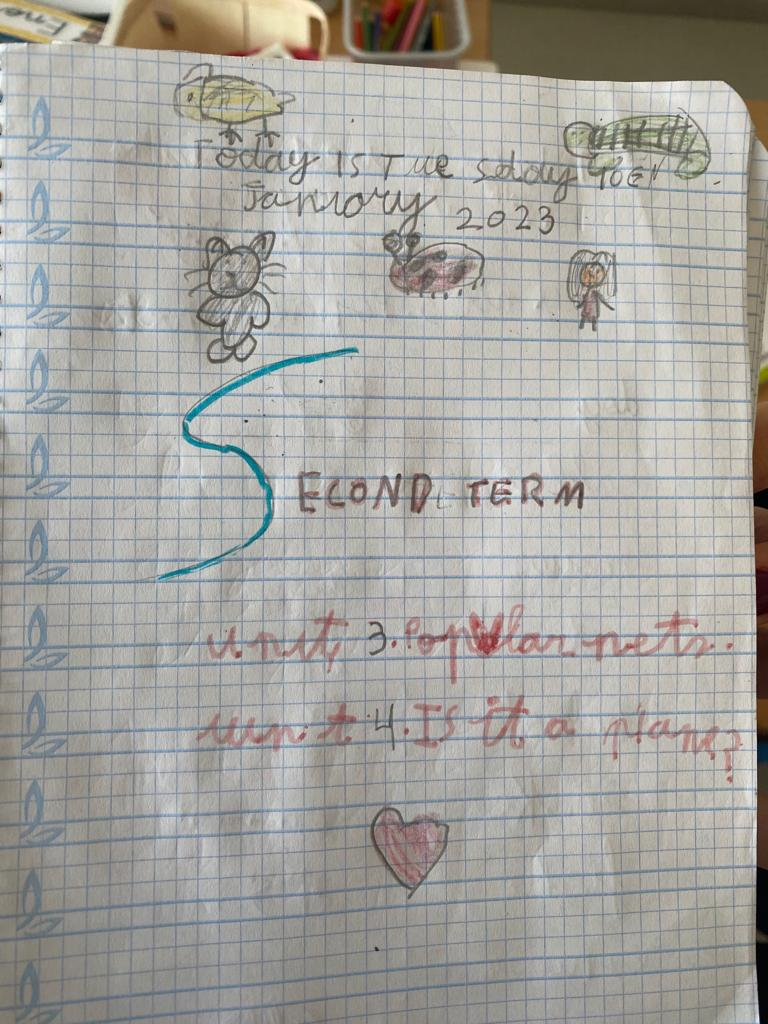 Today is Tuesday
January 2023
SECOND TERM
unit 3. Popular pets.
unit 4. Is it a plane?